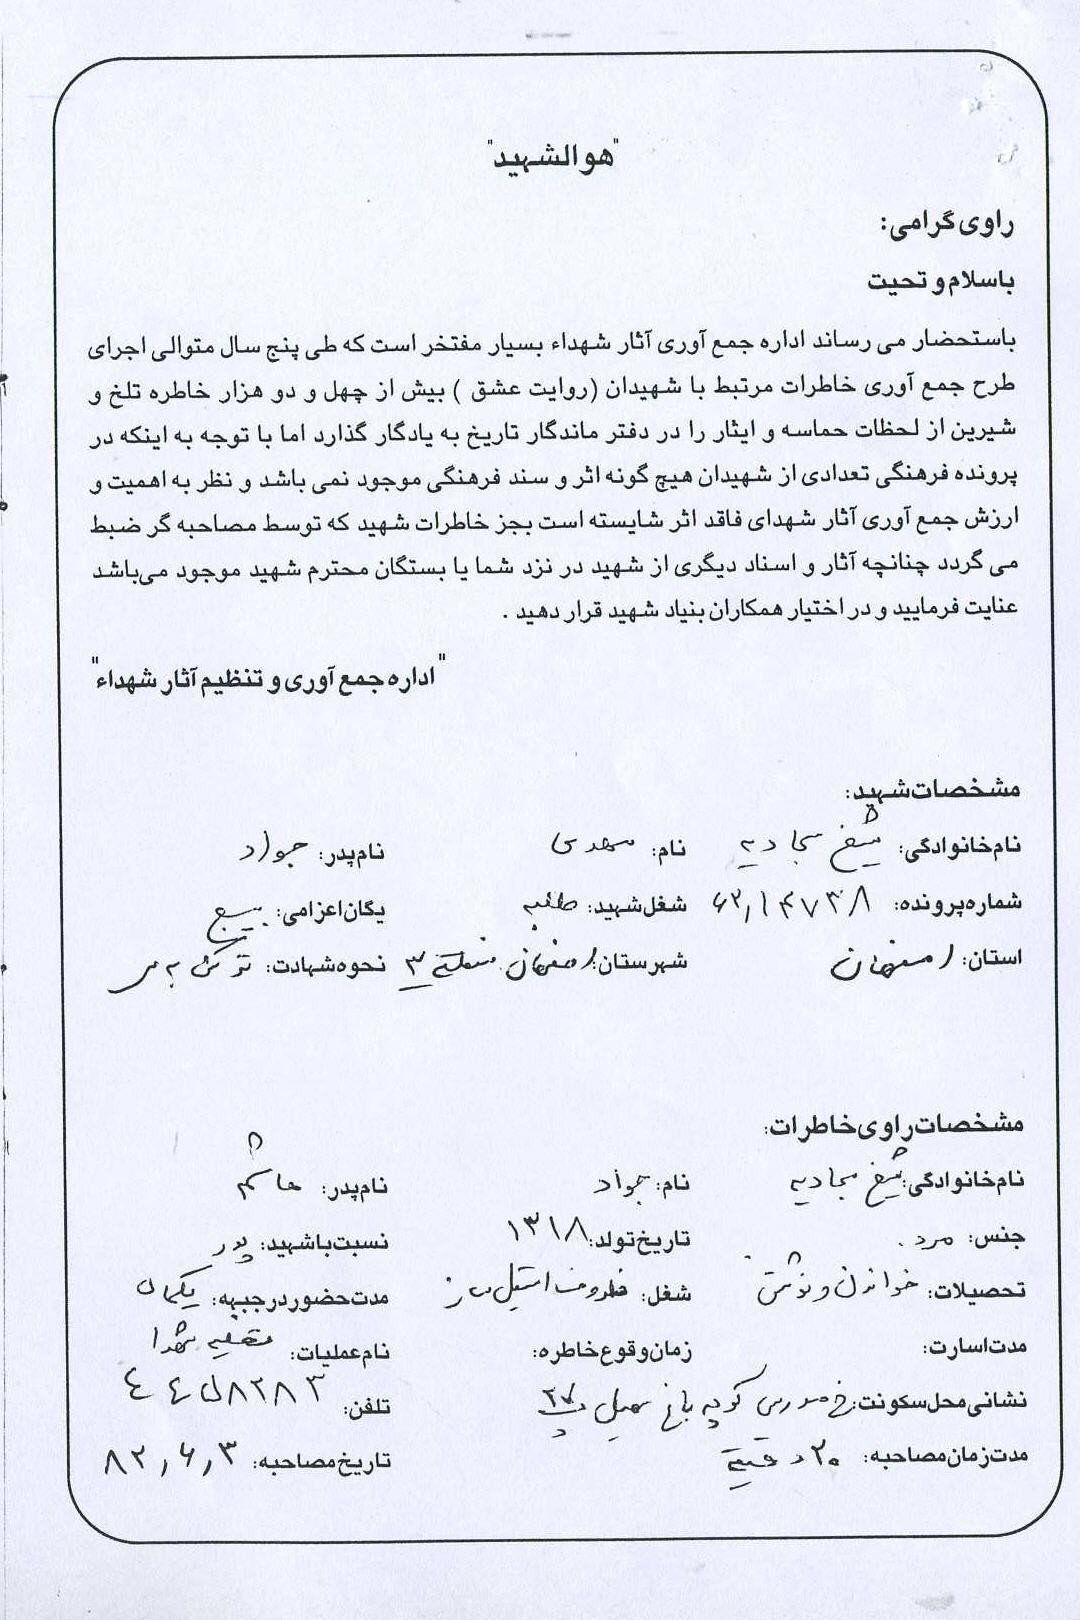 "هوالشهید"
راوی گرامی:
باسلام و تحیت
باستحضار می رساند اداره جمع آوری آثار شهداء بسیار مفتخر است که طی پنج سال متوالی اجرای
طرح جمع آوری خاطرات مرتبط با شهیدان (روایت عشق ) بیش از چهل و دو هزار خاطره تلخ و
شیرین از لحظات حماسه و ایثار را در دفتر ماندگار تاریخ به یادگار گذارد اما با توجه به اینکه در
پرونده فرهنگی تعدادی از شهیدان هیچ گونه اثر و سند فرهنگی موجود نمی باشد و نظر به اهمیت و
ارزش جمع آوری آثار شهدای فاقد اثر شایسته است بجز خاطرات شهید که توسط مصاحبه گر ضبط
می گردد چنانچه آثار و اسناد دیگری از شهید در نزد شما یا بستگان محترم شهید موجود می‌باشد
عنایت فرمایید و در اختیار همکاران بنیاد شهید قرار دهید .
"اداره جمع آوری و تنظیم آثار شهداء"
مشخصات شهید:
نام خانوادگی: شیخ سجادیه نام: مهدی نام پدر: جواد
شماره پرونده: شغل شهید: طلبه یگان اعزامی: بسیج
استان: اصفهان شهرستان: اصفهان منطقه ۳ نحوه شهادت: ترکش به سر
مشخصات راوی خاطرات:
نام خانوادگی: شیخ سجادیه نام: جواد نام پدر: هاشم
جنس: مرد . تاریخ تولد: ۱۳۱۸ نسبت با شهید: پدر
تحصیلات: خواندن و نوشتن شغل: ظروف استیل ساز مدت حضور در جبهه: یکماه
مدت اسارت: زمان وقوع خاطره: نام عملیات: شهدا
نشانی محل سکونت: خ کوچه باغ سهیل پ ۲۷ تلفن:
مدت زمان مصاحبه: ۲۰ دقیقه تاریخ مصاحبه: ۸۲,۶,۳